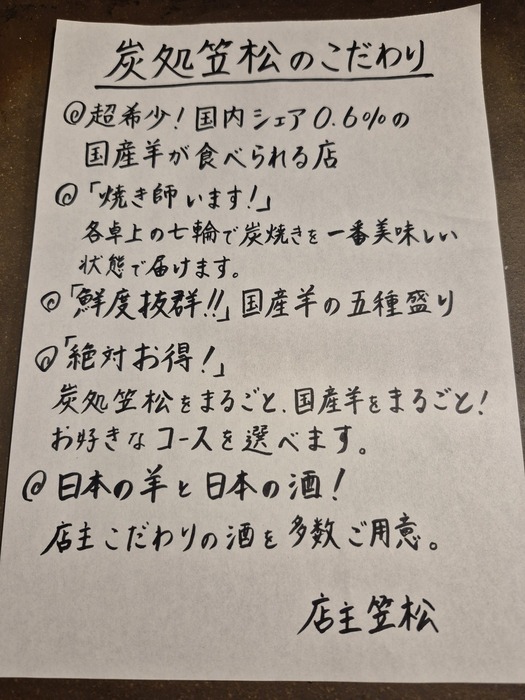 炭処笠松のこだわり
◎超希少！国内シェア0.6%の
国産羊が食べられる店
◎「焼き師います！」
各卓上の七輪で炭焼きを一番美味しい
状態で届けます。
◎「鮮度抜群！！」国産羊の五種盛り
◎「絶対お得！」
炭処笠松をまるごと、国産羊をまるごと！
お好きなコースを選べます。
◎日本の羊と日本の酒！
店主こだわりの酒を多数ご用意。
店主笠松